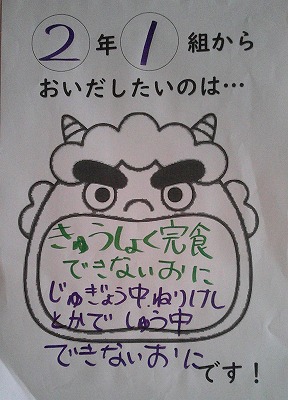 2年1組から
おいだしたいのは…
きゅうしょく完食
できないおに
じゅぎょう中、ねりけし
とかでしゅう中
できないおに
です！